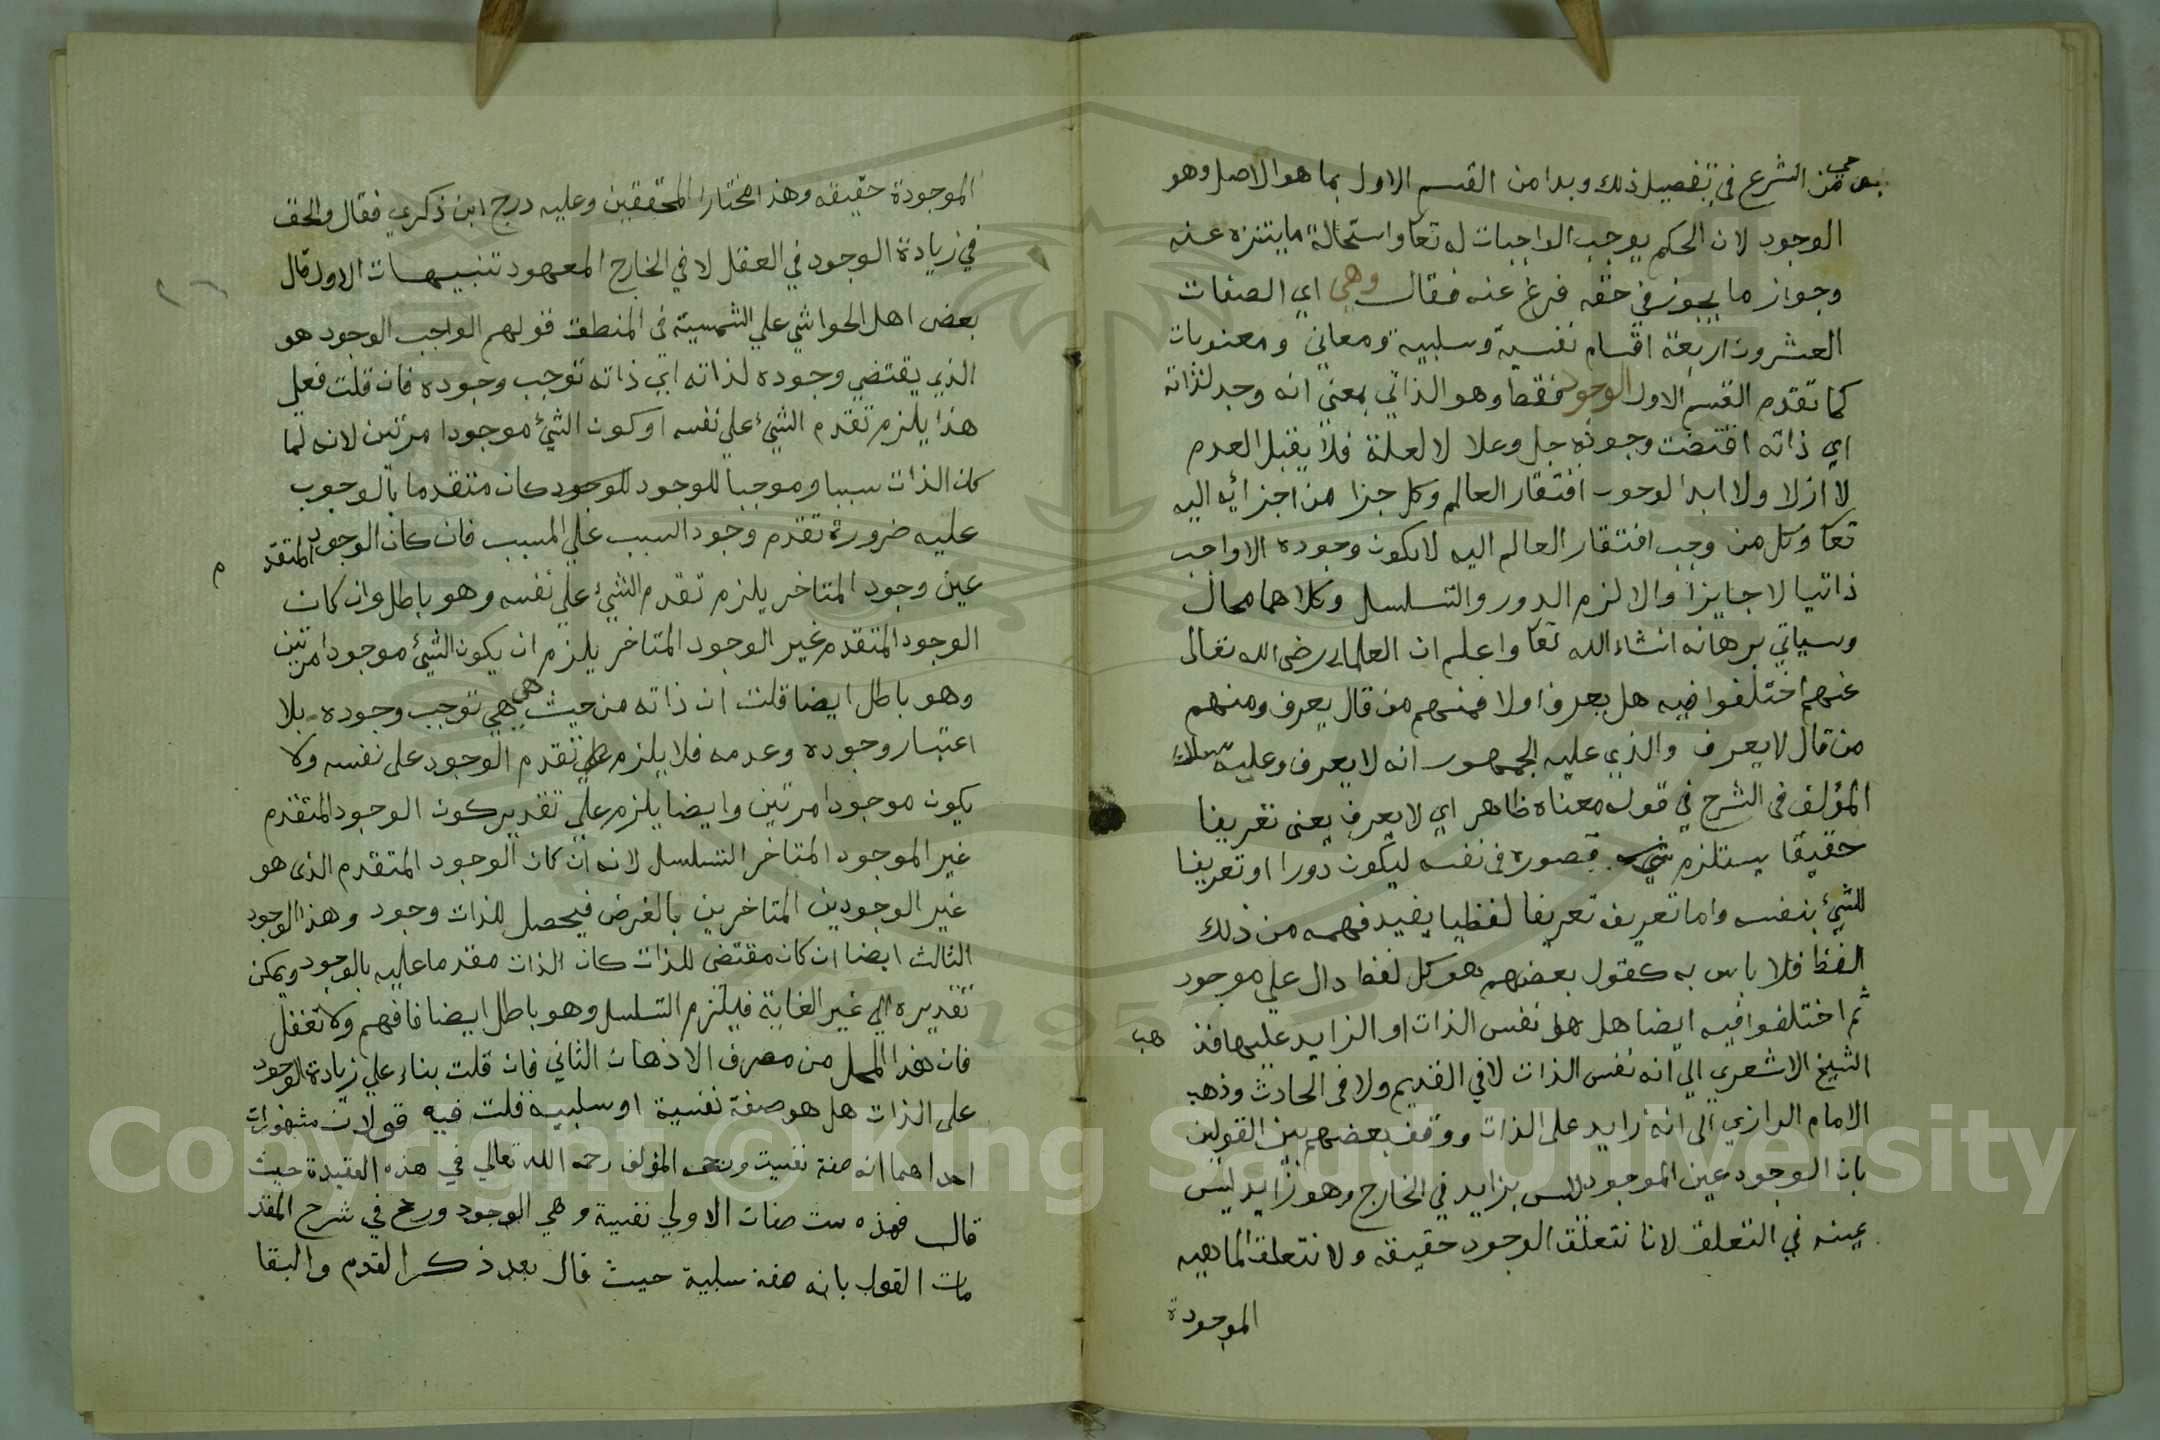 من الشرع في تفصيل ذلك وبدا من القسم الاول بما هو الاصل وهو
الوجود لان الحكم بوجب الواجبات له تعا واستحالة ما يتنزه عنه
وجواز ما يجوز في حقه فرغ عنه فقال وهي اي الصفات
العشرون اربعة اقسام نفسية وسلبية ومعاني ومعنويات
كما تقدم القسم الاول الوجود فقط وهو الذاتي بمعني انه وجد لذاته
اي ذاته اقتضت وجوده جل وعلا لا لعلة فلا يقبل العدم
لا ازلا ولا ابدا لوجوب افتقار العالم وكل جزا من اجزائه اليه
تعا وكل من وجب افتقار العالم اليه لا يكون وجوده الا واجب
ذاتيا لا جايزا والا لزم الدور والتسلسل وكلاهما محال
وسياتي برهانه انشاء الله تعا واعلم ان العلماء رضى الله تعالى
عنهم اختلفوا فيه هل يعرف او لا فمنهم من قال يعرف ومنهم
من قال لا يعرف والذي عليه الجمهور انه لا يعرف وعليه
المؤلف فى الشرح في قوله معناه ظاهر اي لا يعرف يعنى تعريفا
حقيقا يستلزم تصوره فى نفسه ليكون دورا او تعريفا
للشيء بنفسه واما تعريف تعريفا لفظيا يفيد فهمه من ذلك
الفظ فلا باس به كقول بعضهم هو كل لفظ دال علي موجود
ثم اختلفوا فيه ايضا هل هو نفس الذات او الزايد عليها فذ هب
الشيخ الاشعري الي انه نفس الذات لا في القديم ولا فى الحادث وذهب
الامام الرازي الى انه زايد على الذات ووقف بعضهم بين القولين
بان الوجود عين الموجود ليس بزايد في الخارج وهو زايد ليس
عينه في التعلق لانا نتعلق الوجود حقيقه ولا نتعلق الماهيه
الموجودة
الموجودة حقيقه وهذا مختار المحققين وعليه درج ابن ذكري فقال والحق
في زيادة الوجود في العقل لا في الخارج المعهود تنبيهات الاول قال
بعض اهل الحواشي علي الشمسية فى المنطق قولهم الواجب الوجود هو
الذي يقتضي وجوده لذاته اي ذاته توجب وجوده فان قلت فعلي
هذا يلزم تقدم الشيء علي نفسه او كون الشيء موجودا مرتين لانه لما
كان الذات سببا وموجبا للوجود للوجود كان متقدما بالوجوب
عليه ضرورة تقدم وجود السبب علي المسبب فان كان الوجود المتقد م
عين وجود المتاخر يلزم تقدم الشيء علي نفسه وهو باطل وان كان
الوجود المتقدم غير الوجود المتاخر يلزم ان يكون الشيء موجودا مرتين
وهو باطل ايضا قلت ان ذاته من حيث هي هي توجب وجوده بلا
اعتبار وجوده وعدمه فلا يلزم تقدم الوجود على نفسه ولا
يكون موجودا مرتين وايضا يلزم علي تقدير كون الوجود المتقدم
غير الموجود المتاخر التسلسل لانه ان كان الوجود المتقدم الذى هو
غير الوجودين المتاخرين بالفرض فيحصل للذات وجود وهذا الوجود
الثالث ايضا ان كان مقتضى للذات كان الذات مقدما عليه بالوجود ويمكن
تقديره الي غير الغاية فيلزم التسلسل وهو باطل ايضا فافهم ولا تغفل
فان هذا المحل من مصرف الاذهان الثاني فان قلت بناء علي زيادة الوجود
على الذات هل هو صفة نفسية او سلبيه قلت فيه قولان مشهوران
احداهما انه صفة نفسية المؤلف رحمه الله تعالي في هذه العقيدة حيث
قال فهذه ست صفات الاولي نفسية وهي الوجود ورجح في شرح المقد
مات القول بانه صفة سلبية حيث قال بعد ذكر القدم والبقا
Copyright © King Saud University